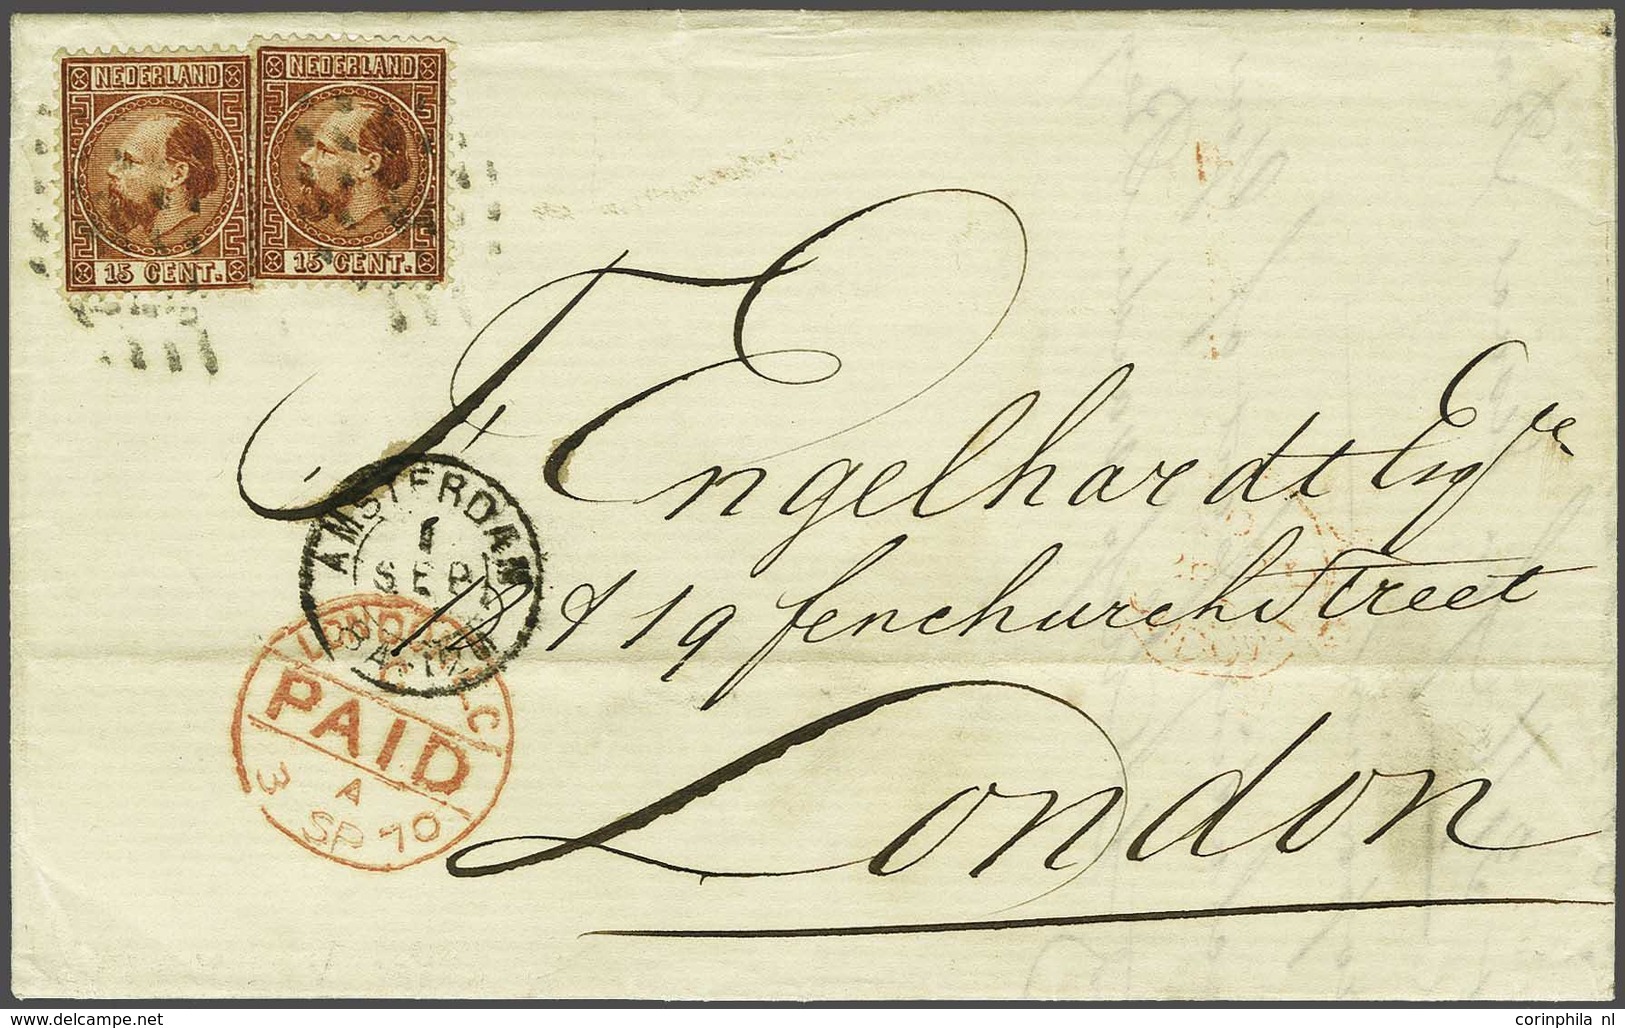 NEDERLAND
15 CENT.
NEDERLAND
15 CENT.
F. Engelhardt Esqre
18 & 19 fenchurch Street
London
AMSTERDAM
1
SEP
LONDON E.C
PAID
3 A
SP 70
www.delcampe.net
corinphila_nl